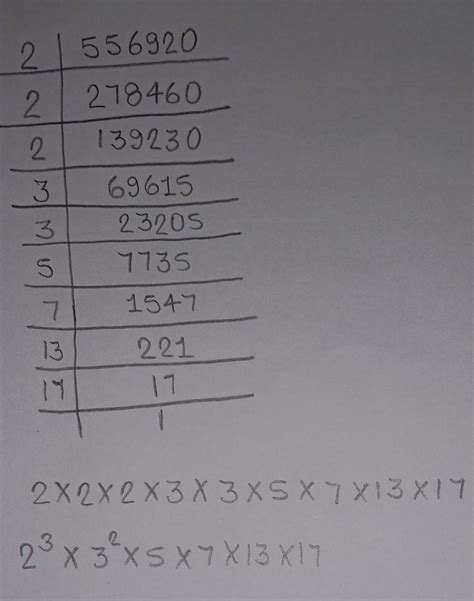 2 556920
2 278460
2 139230
3 69615
3 23205
5 7735
7 1547
13 221
17 17
1
2×2×2×3×3×5×7×13×17
2³×3²×5×7×13×17